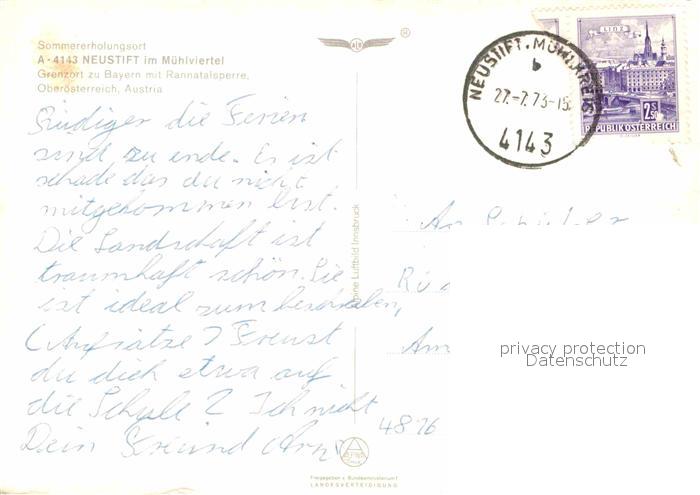 Sommererholungsort
A-4143 NEUSTIFT im Mühlviertel
Grenzort zu Bayern mit Rannatalsperre,
Oberösterreich, Austria
LINZ
2S50
REPUBLIK ÖSTERREICH
NEUSTIFT, MÜHLKREIS
b
27.-7.73-15
4143
die Ferien
sind zu ende. Es ist
schade das du nicht
mitgekommen bist.
Die Landschaft ist
traumhaft schön. Sie
ist ideal zum beschreiben,
(Aufsätze) Freust
du dich etwa auf
die Schule? Ich nicht
Dein Freund
Alpine Luftbild Innsbruck
An
Am
4876
privacy protection
Datenschutz
Freigegeben v. Bundesministerium f.
LANDESVERTEIDIGUNG